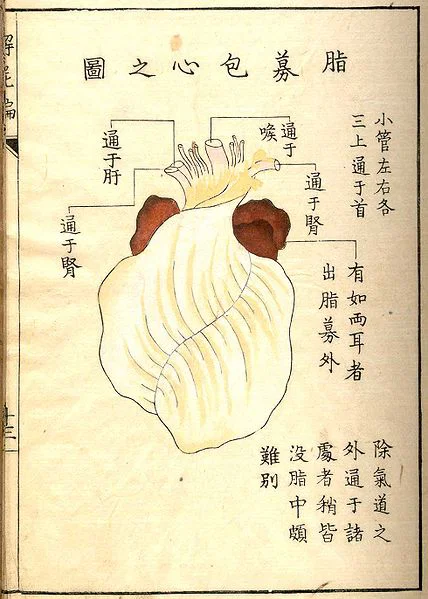 脂募包心之圖
小管左右各
三上通于首
通于
喉
通于腎
通于肝
通于腎
有如両耳者
出脂募外
除氣道之
外通于諸
處者稍皆
没脂中頗
難別
解屍編
十三